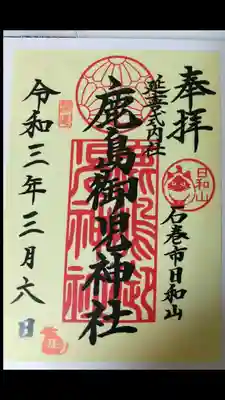 奉拝
石巻市日和山
日和山
延喜式内社
鹿島御児神社
令和三年三月六日